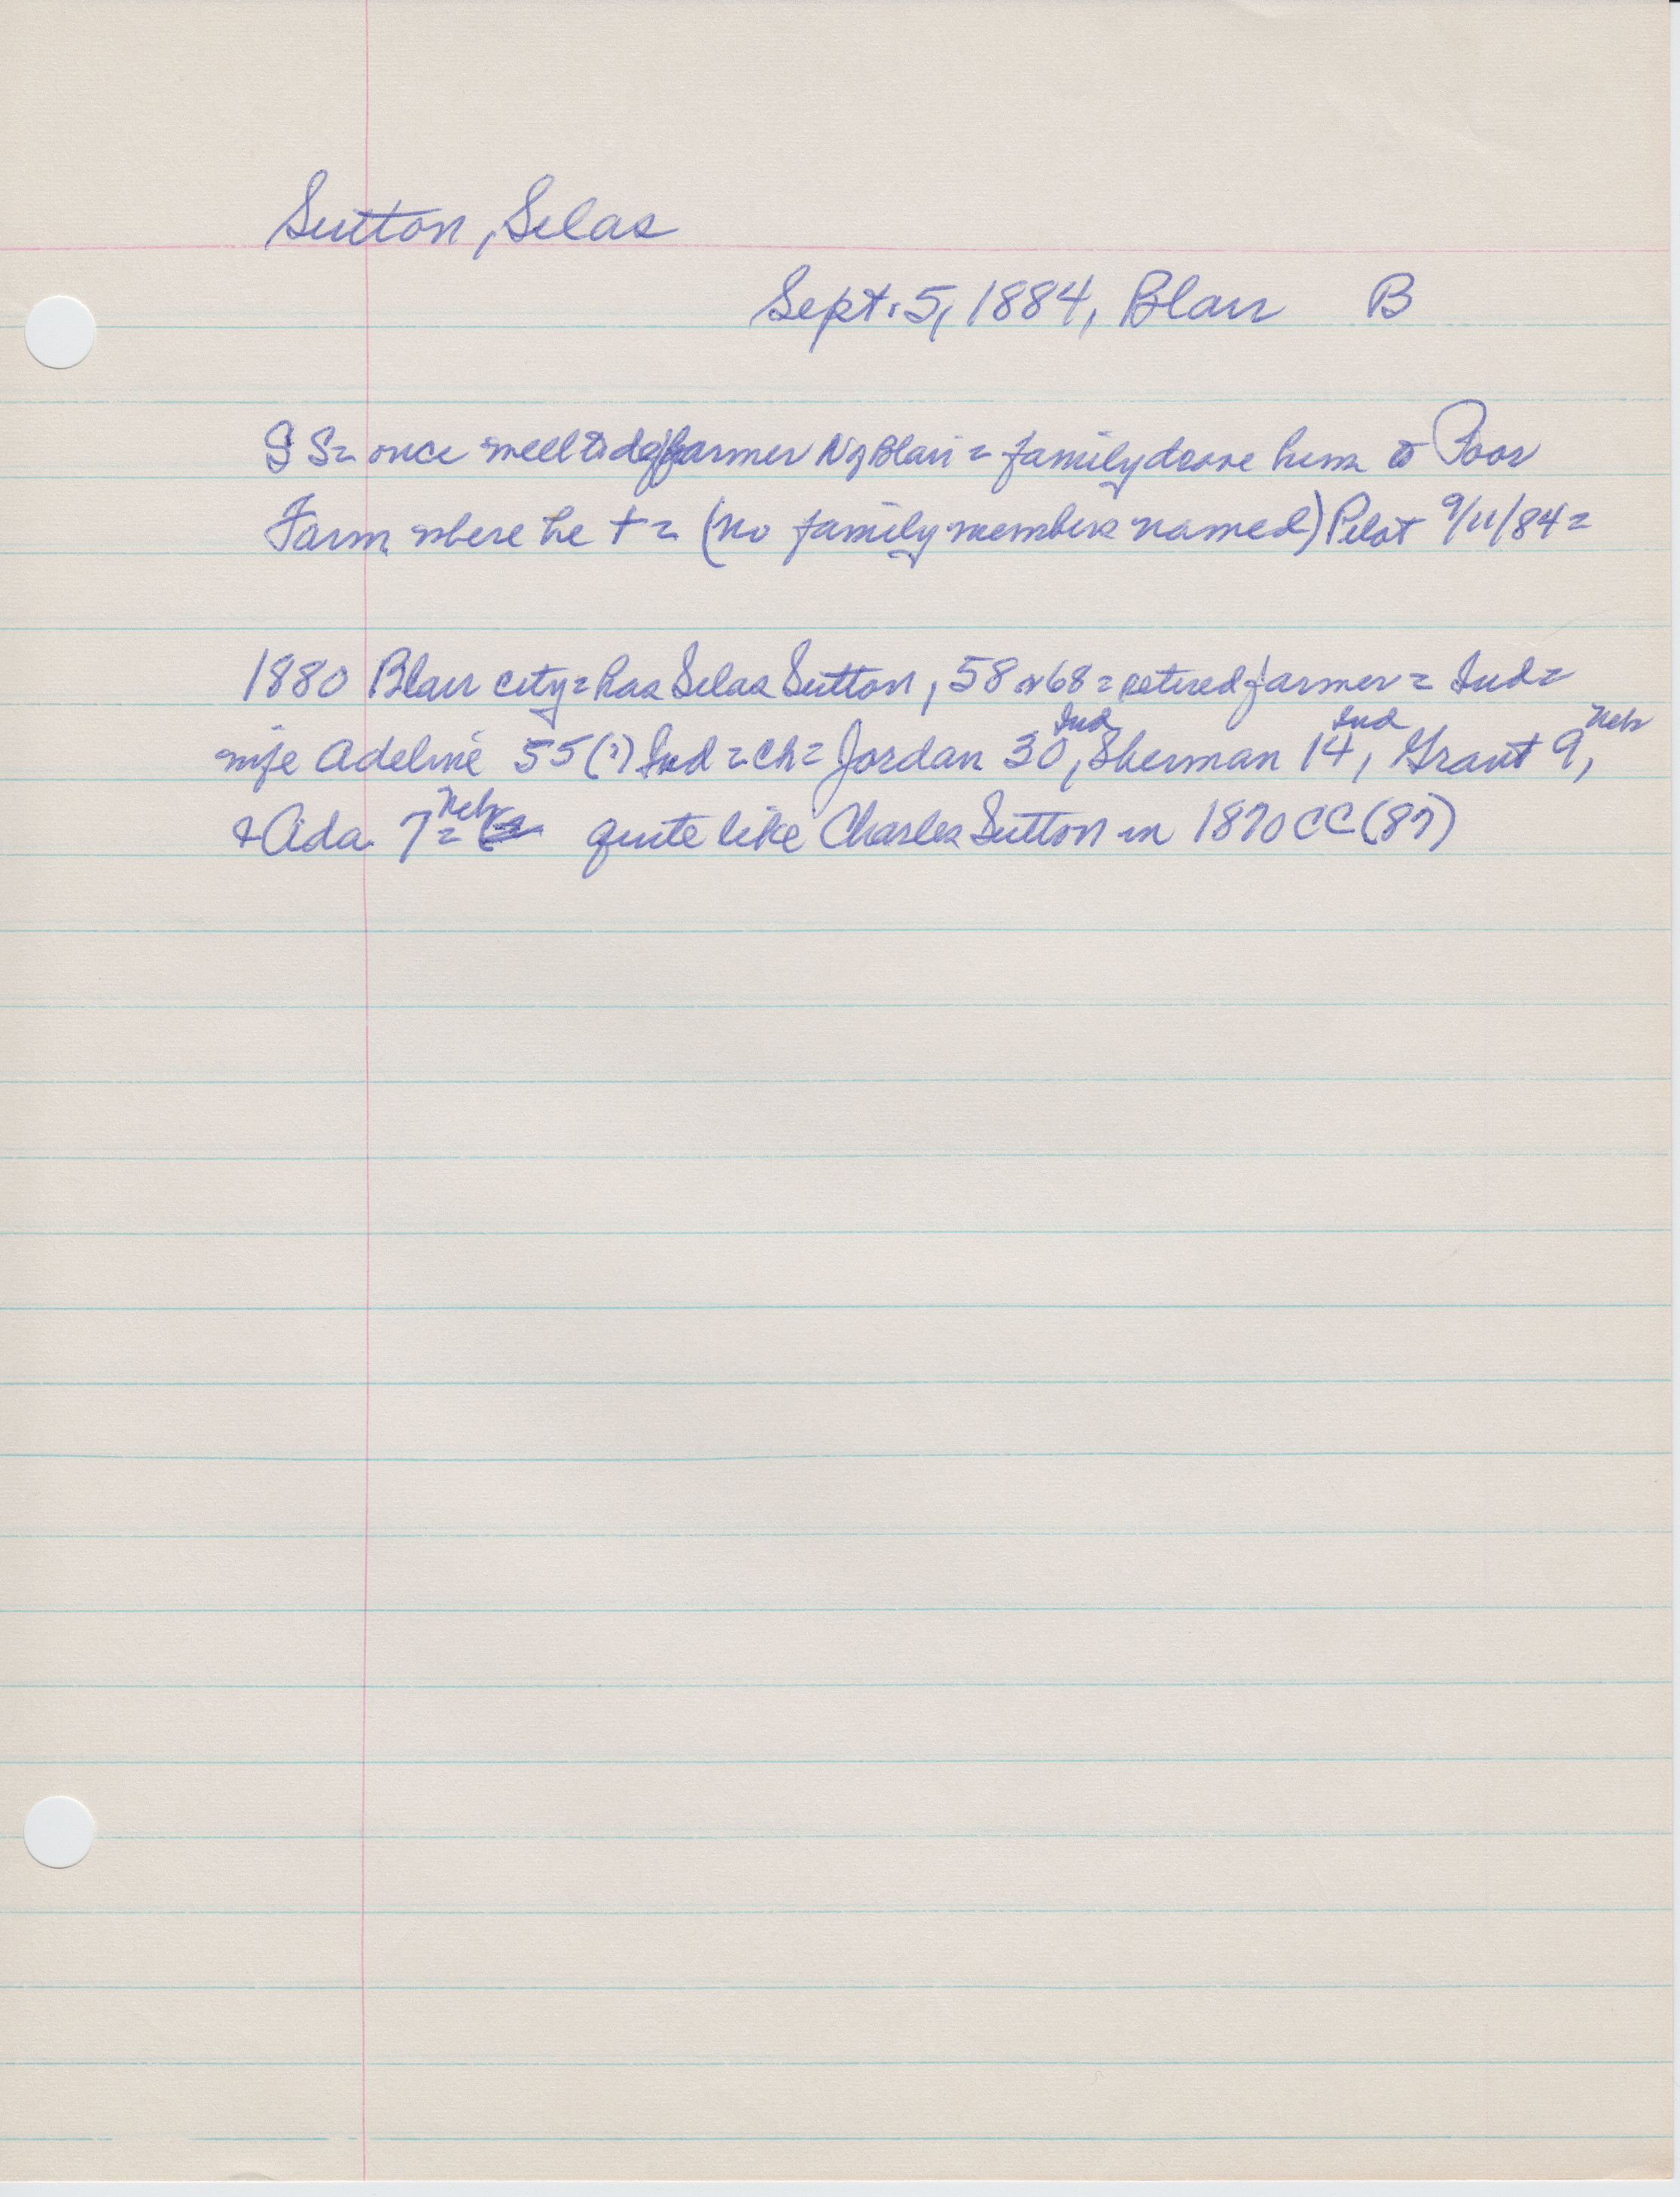 Sutton, Silas
Sept. 5, 1884, Blair B
S S = once well to do farmer N of Blair = family drove him to Poor
Farm where he + = (no family members named) Pilot 9/11/84 =
1880 Blair city = has Silas Sutton, 58 or 68 = retired farmer = Ind =
wife Adeline 55 (?) Ind = ch = Jordan 30 Ind, Sherman 14 Ind, Grant 9 Neb,
& Ada 7 Neb = quite like Charles Sutton in 1870 CC (87)